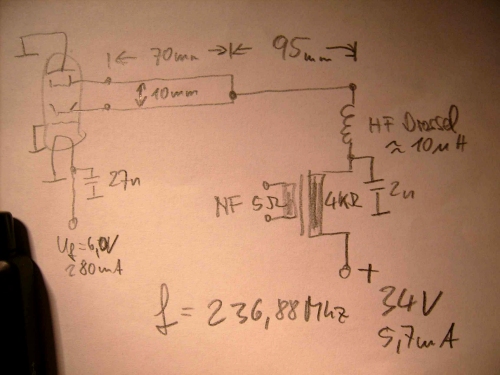 70mm
95mm
10mm
HF Drossel
≈ 10µH
27n
NF 5Ω
4KΩ
2n
Uf=6,0V
280mA
+
f = 236,88Mhz
34V
5,7mA